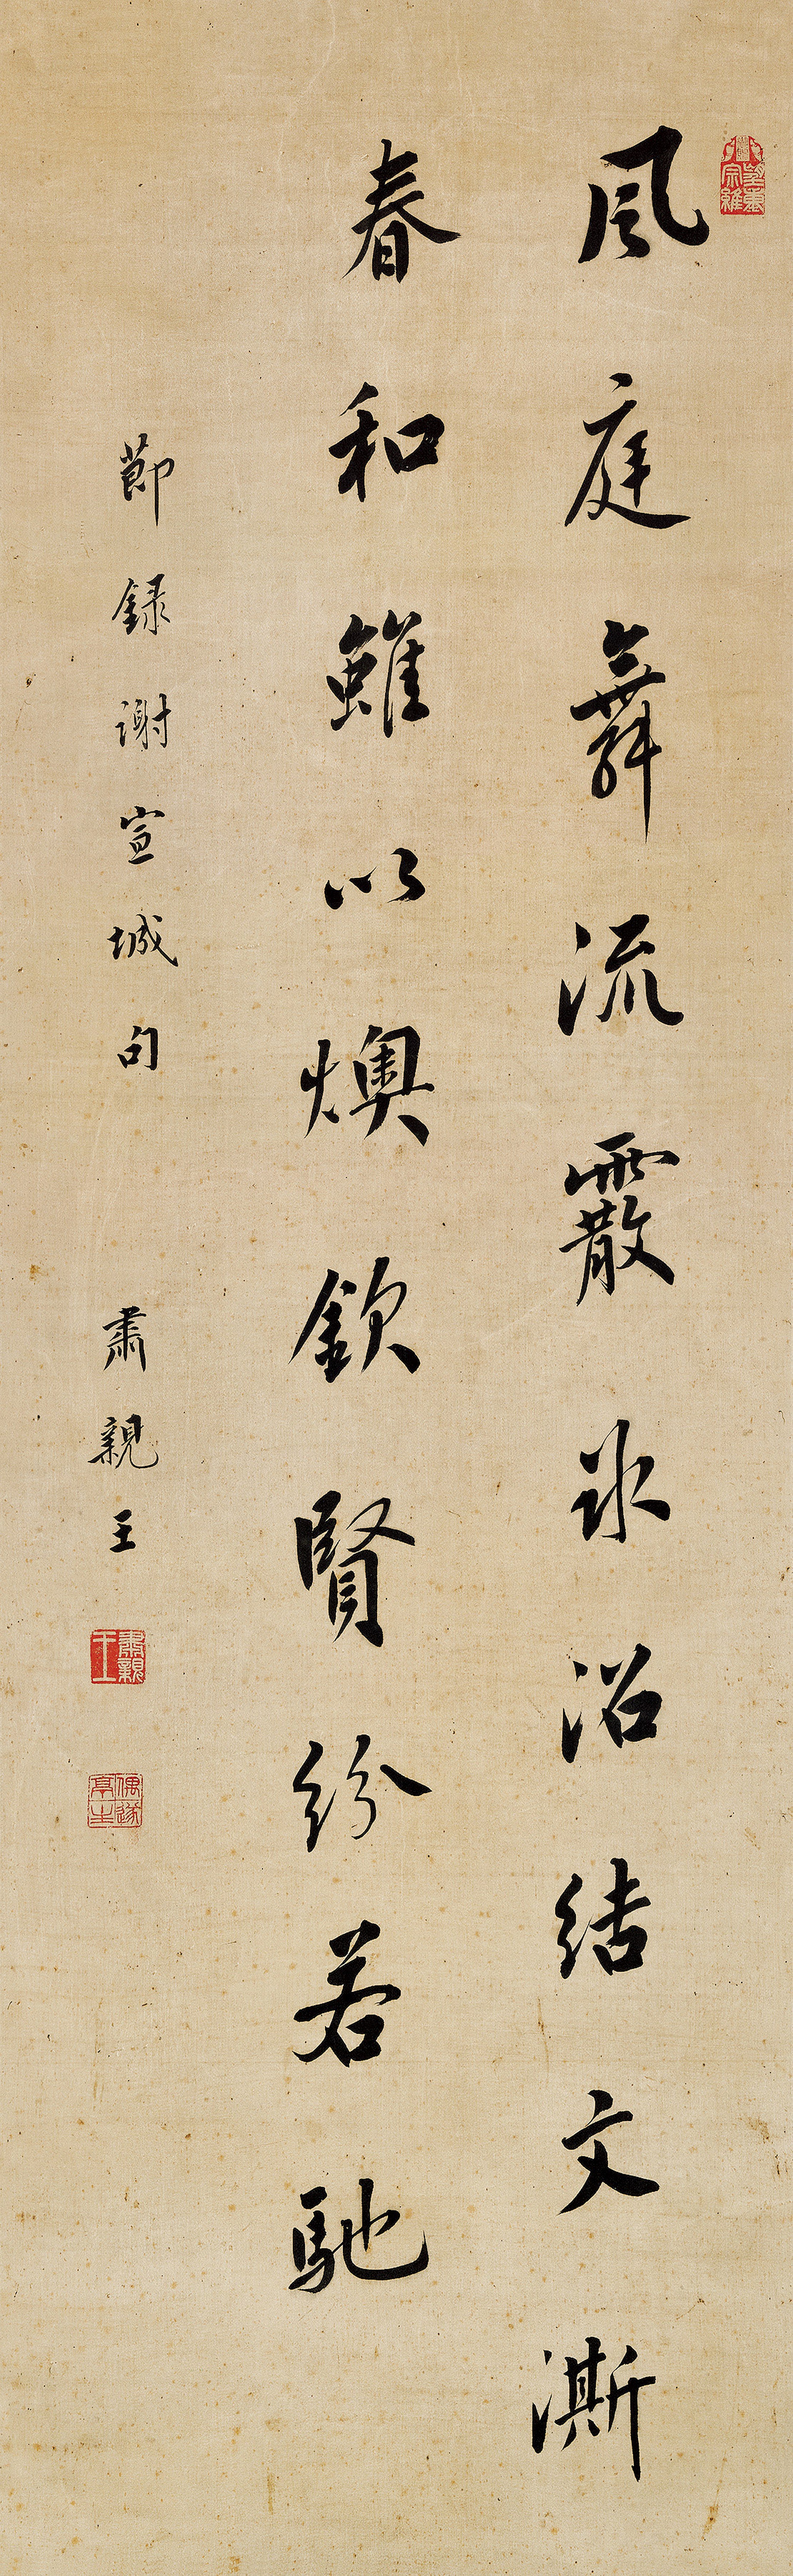 風庭舞流霰冰沼結文澌
春和雖以燠欽賢紛若馳
節録謝宣城句
肅親王
肅親王
偶遂亭主